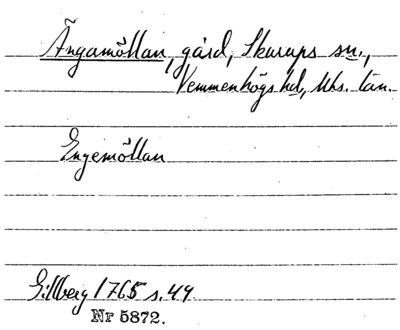 Ängamöllan, gård, Skurups sn.,
Vemmenhögs hd, Mhs. län.
Engemöllan
Gillberg 1765 s. 49
Nr 5872.